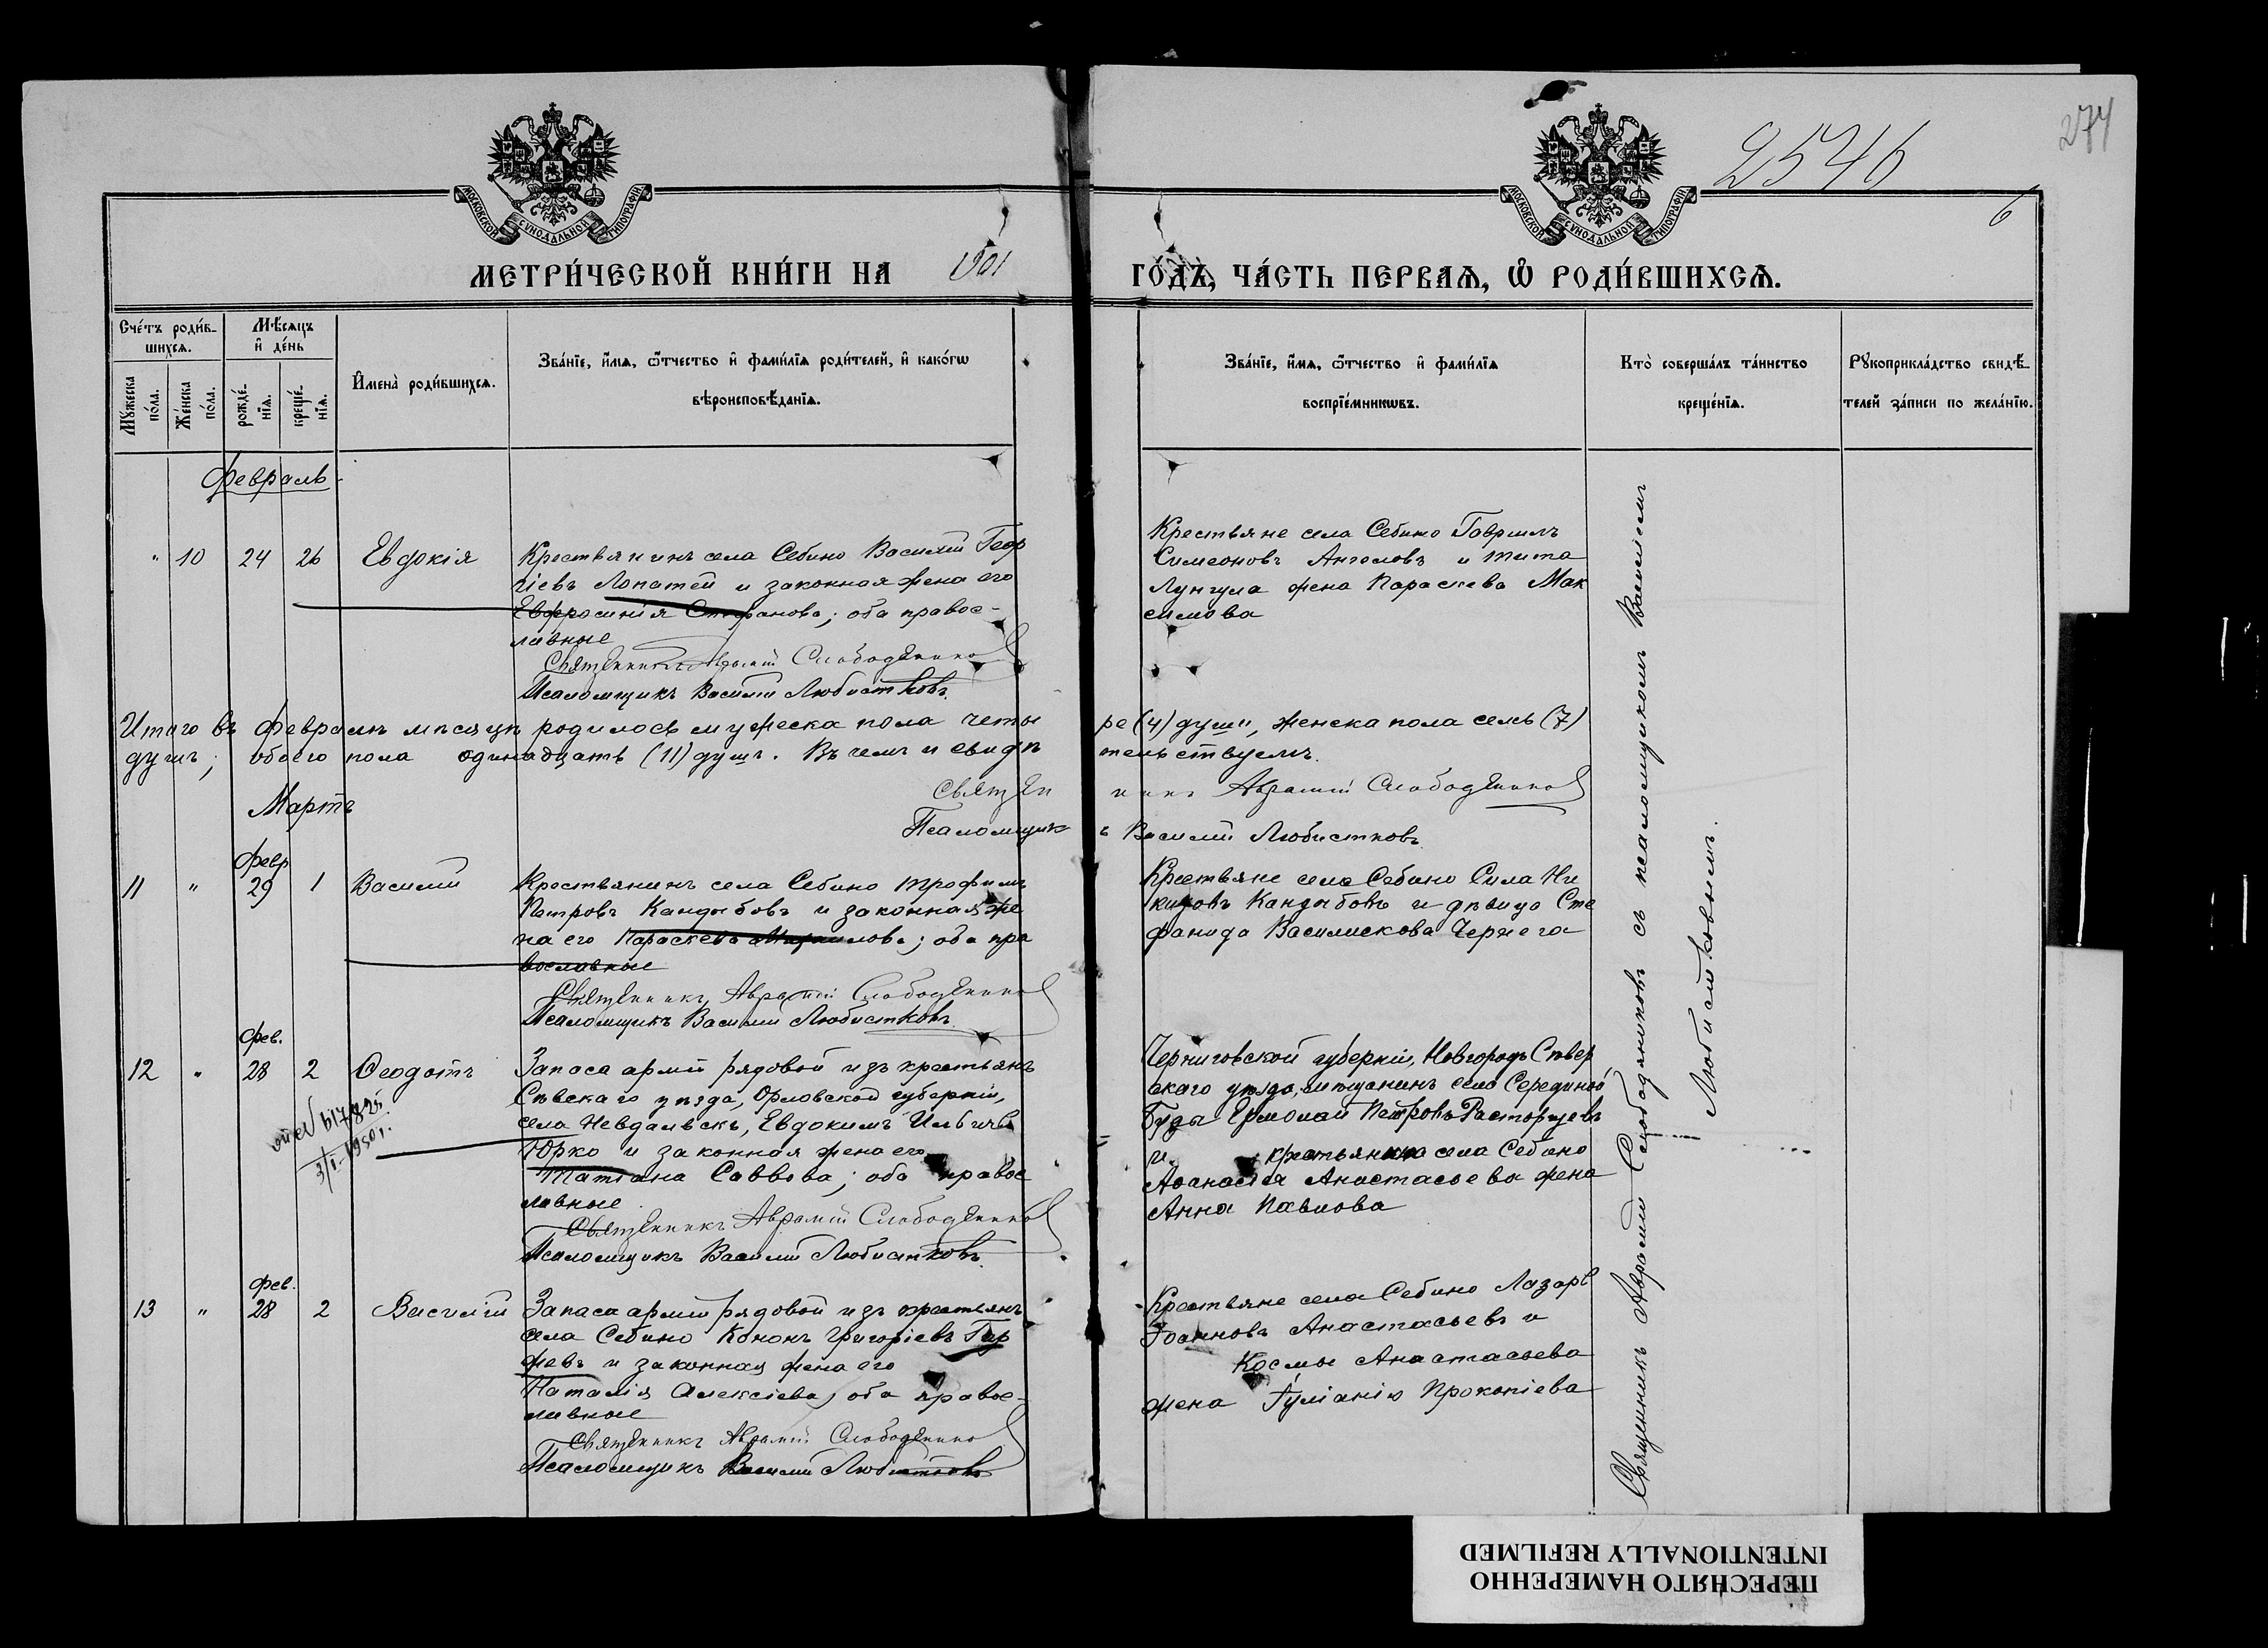 2546
274
6
МОСКОВСКОЙ СУНОДАЛЬНОЙ ТИПОГРАФІИ
МОСКОВСКОЙ СУНОДАЛЬНОЙ ТИПОГРАФІИ
МЕТРИ́ЧЕСКОЙ КНИ́ГИ НА 1901 ГО́ДЪ, ЧА́СТЬ ПЕРВАѦ, Ѡ҆ РОДИ́ВШИХСѦ.
Сче́тъ роди́в-
шихсѧ.
Мѣ́сѧцъ
и҆ де́нь
Мꙋ́жеска
по́ла.
Же́нска
по́ла.
рожде́-
нїѧ.
креще́-
нїѧ.
И҆мена̀ роди́вшихсѧ.
Зва́нїе, и҆́мѧ, ѻ҆́тчество и҆ фами́лїѧ роди́телей, и҆ како́гѡ
вѣроисповѣ́данїѧ.
Зва́нїе, и҆́мѧ, ѻ҆́тчество и҆ фами́лїѧ
воспрїе́мникѡвъ.
Кто̀ соверша́лъ та́инство
креще́нїѧ.
Рꙋкоприкла́дство свидѣ́-
телей за́писи по жела́нїю.
Февраль
" 10 24 26 Евдокія
Крестьянинъ села Себино Василій Геор
гіевъ Лопатей и законная жена его
Евфросинія Стефанова; оба правос-
лавные
Священникъ Аврамій Слободяник
Псаломщикъ Василій Любистковъ.
Крестьяне села Себино Гавріилъ
Симеоновъ Ангеловъ и Тита
Лунгула жена Параскева Мак
симова
Итого въ Февралѣ мѣсяцѣ родилось мужеска пола четы ре (4) душ", женска пола семь (7)
душъ; обоего пола одинадцать (11) душъ. Въ чемъ и свидѣ тельствуемъ.
Священ никъ Аврамій Слободяник
Псаломщик ъ Василій Любистковъ
Мартъ
Февр
11 " 29 1 Василій
Крестьянинъ села Себино Трофимъ
Петровъ Кандыбовъ и законная же
на его Параскева; оба пра
вославные
Священникъ, Аврамій Слободяник
Псаломщикъ Василій Любистковъ
Крестьяне села Себино Сила Ни
китовъ Кандыбовъ и дѣвица Сте
фанида Василискова Чернега
Фев.
12 " 28 2 Ѳеодотъ
3/I-1950г.
Запаса арміи рядовой изъ крестьянъ
Сѣвскаго уѣзда, Орловской губерніи,
села Невдальскъ, Евдокимъ Ильичъ
Юрко и законная жена его
Татіана Саввова; оба правос
лавные
Священникъ Аврамій Слободяник
Псаломщикъ Василій Любистковъ.
Черниговской губерніи, Новгородъ Сѣвер
скаго уѣзда, мѣщанинъ села Серединой
Буды Ермолай Петровъ Расторгуевъ
и крестьянина села Себино
Аѳанасія Анастасьева жена
Анна Павлова
Фев.
13 " 28 2 Василій
Запаса арміи рядовой изъ крестьянъ
села Себино Кононъ Григоріевъ Гар
жевъ и законная жена его
Наталія Алексіева; оба правос-
лавные
Священникъ Аврамій Слободяник
Псаломщикъ Василій Любистковъ
Крестьяне села Себино Лазарь
Іоанновъ Анастасьевъ и
Космы Анастасьева
жена Іуліанія Прокопіева
Священникъ Аврамій Слободяниковъ съ псаломщикомъ Василіемъ
Любистковымъ.
ПЕРЕСНЯТО НАМЕРЕННО
INTENTIONALLY REFILMED